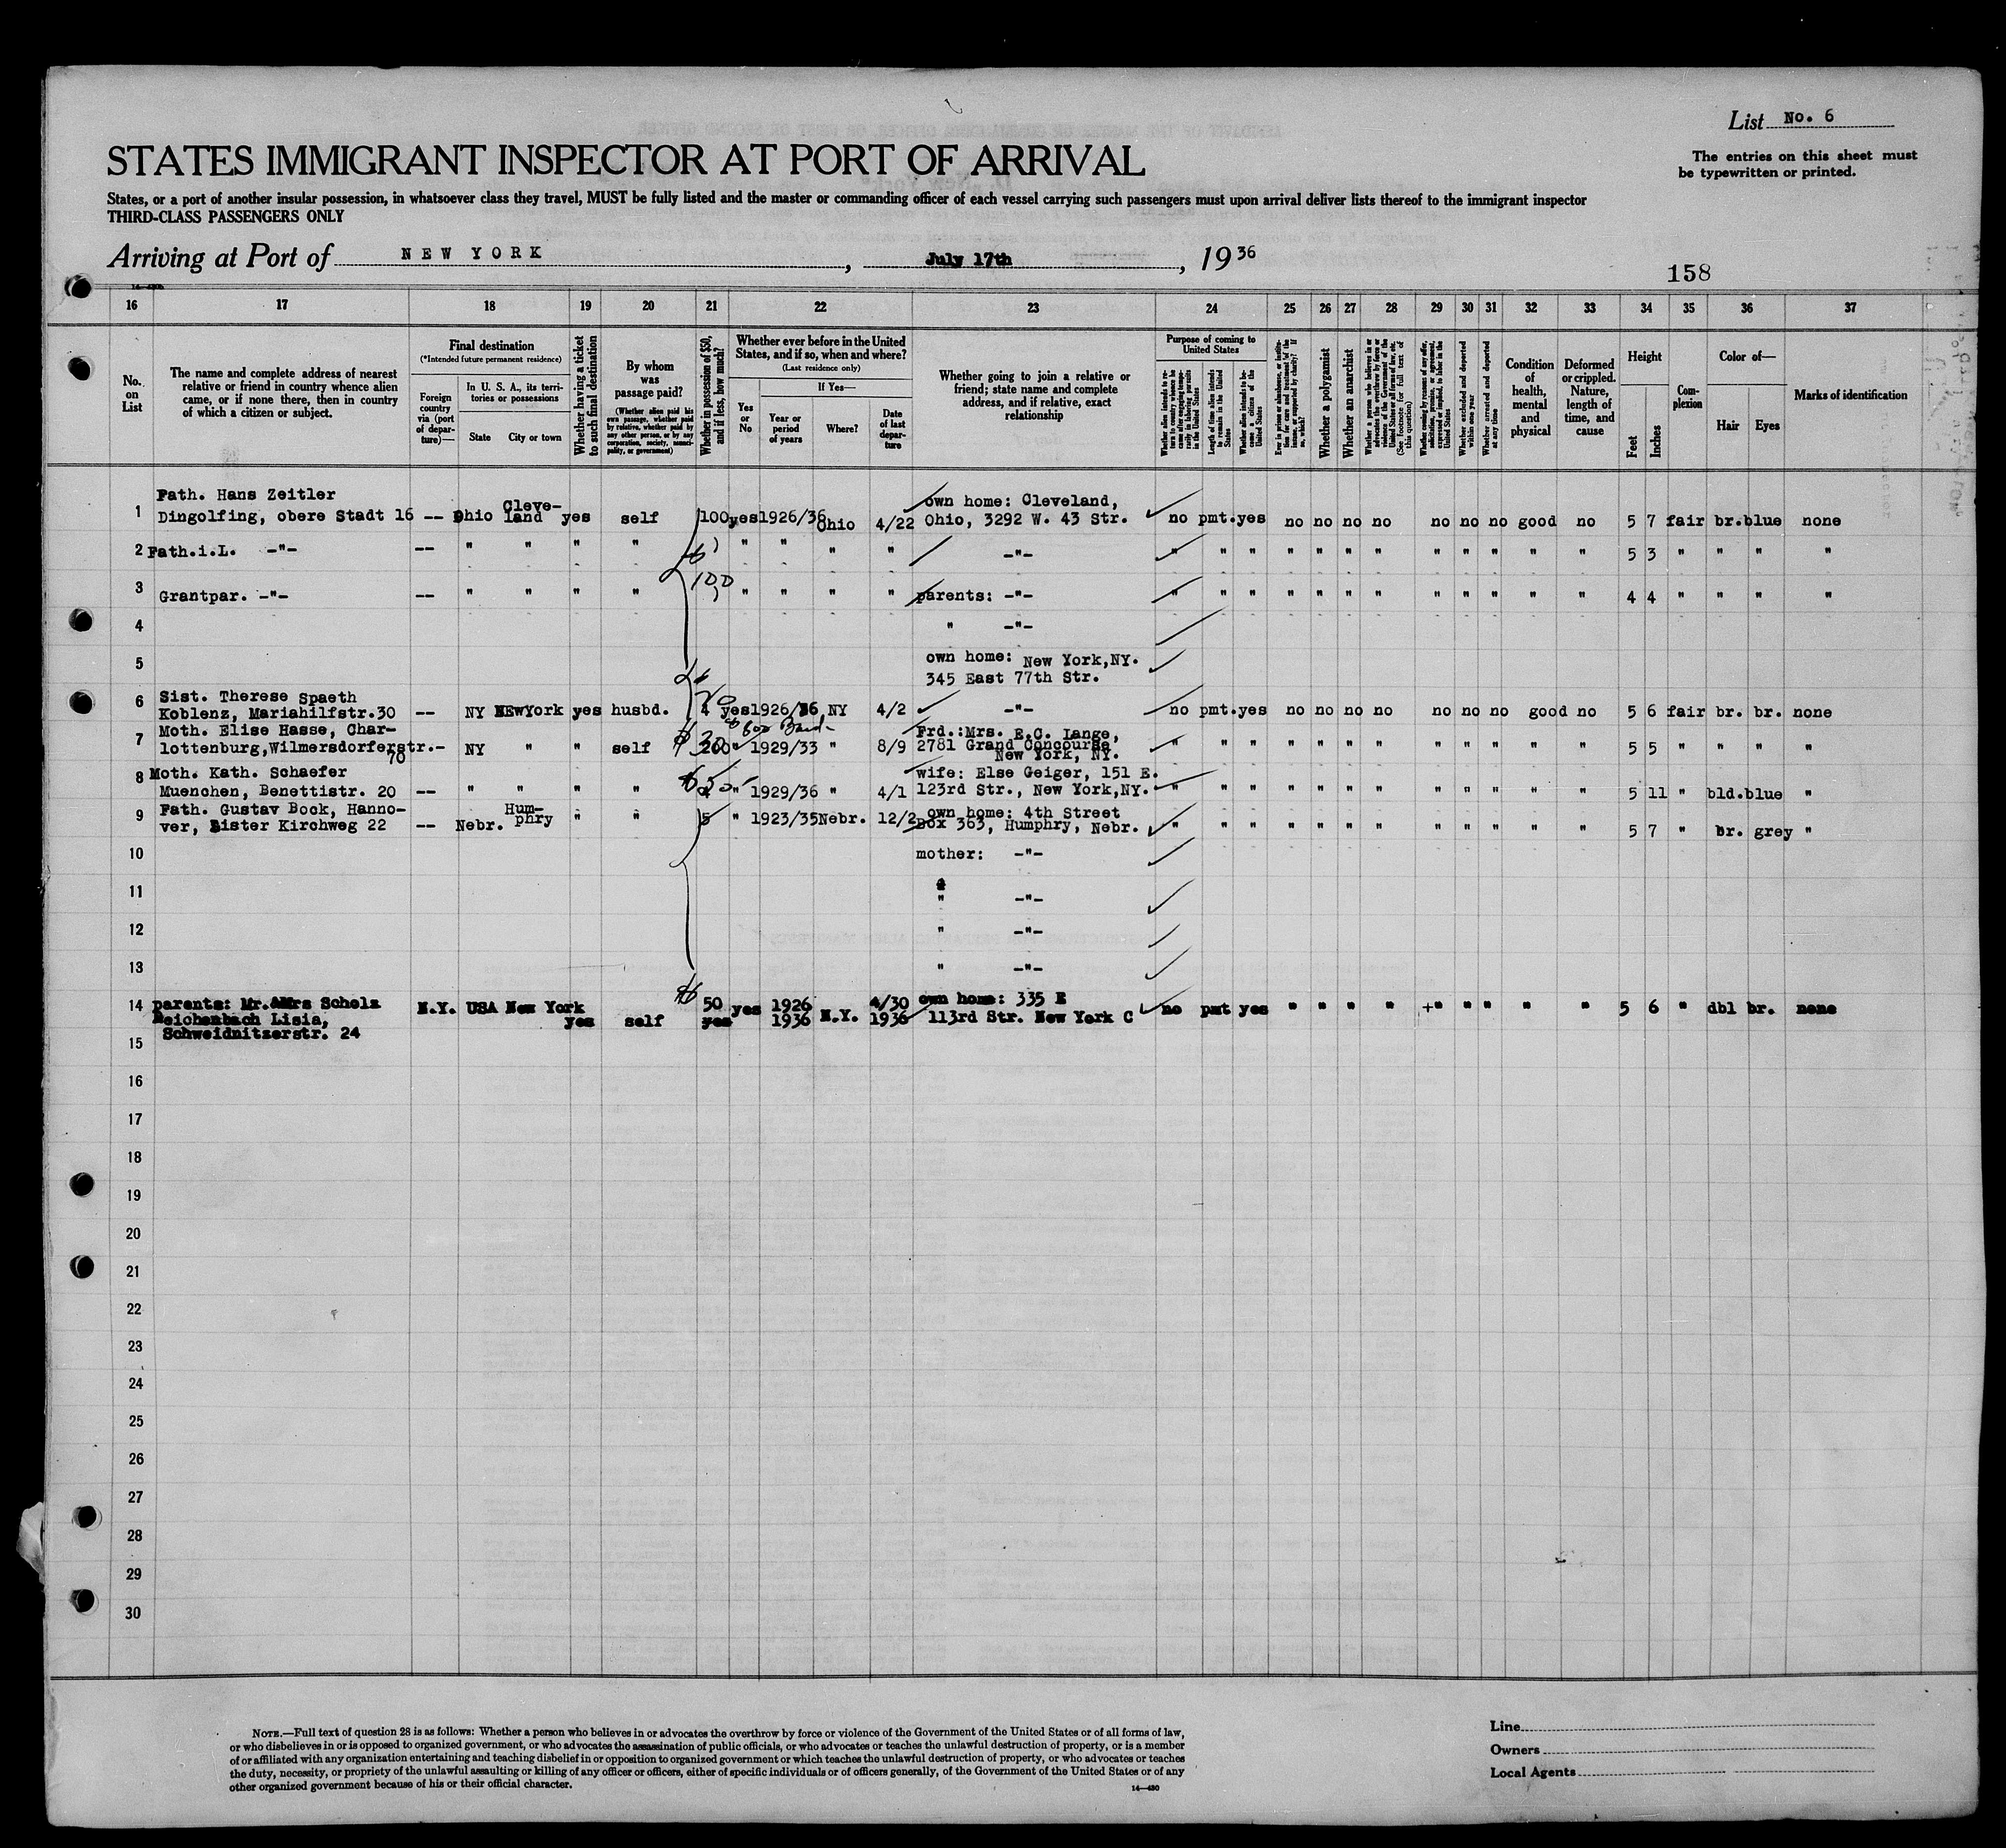 List No. 6
The entries on this sheet must
be typewritten or printed.
STATES IMMIGRANT INSPECTOR AT PORT OF ARRIVAL
States, or a port of another insular possession, in whatsoever class they travel, MUST be fully listed and the master or commanding officer of each vessel carrying such passengers must upon arrival deliver lists thereof to the immigrant inspector
THIRD-CLASS PASSENGERS ONLY
Arriving at Port of NEW YORK, July 17th, 1936
158
16 17 18 19 20 21 22 23 24 25 26 27 28 29 30 31 32 33 34 35 36 37
No. on List
The name and complete address of nearest relative or friend in country whence alien came, or if none there, then in country of which a citizen or subject.
Final destination
(*Intended future permanent residence)
Foreign country via (port of departure)—
In U. S. A., its territories or possessions
State
City or town
Whether having a ticket to such final destination
By whom was passage paid?
(Whether alien paid his own passage, whether paid by relative, whether paid by any other person, or by any corporation, society, municipality, or government)
Whether in possession of $50, and if less, how much?
Whether ever before in the United States, and if so, when and where?
(Last residence only)
Yes or No
If Yes—
Year or period of years
Where?
Date of last departure
Whether going to join a relative or friend; state name and complete address, and if relative, exact relationship
Purpose of coming to United States
Length of time alien intends to remain in the United States
Whether alien intends to become a citizen of the United States
Whether a polygamist
Whether an anarchist
Whether excluded and deported within one year
Whether arrested and deported at any time
Condition of health, mental and physical
Deformed or crippled. Nature, length of time, and cause
Height
Feet
Inches
Complexion
Color of—
Hair
Eyes
Marks of identification
1 Fath. Hans Zeitler
Dingolfing, obere Stadt 16 -- Ohio Cleveland yes self 100 yes 1926/36 Ohio 4/22 own home: Cleveland, Ohio, 3292 W. 43 Str. no pmt. yes no no no no no no no good no 5 7 fair br. blue none
2 Fath.i.L. -"- -- " " " " " " " " -"- " " " " " " " " " " " " 5 3 " " " "
3 Grantpar. -"- -- " " " " 100 " " " " parents: -"- " " " " " " " " " " " " 4 4 " " " "
4 " -"-
5 own home: New York,NY.
345 East 77th Str.
6 Sist. Therese Spaeth
Koblenz, Mariahilfstr.30 -- NY NEWYork yes husbd. 4 yes 1926/36 NY 4/2 -"- no pmt. yes no no no no no no no good no 5 6 fair br. br. none
7 Moth. Elise Hasse, Char-
lottenburg,Wilmersdorferstr.- 70 NY " " self 200 " 1929/33 " 8/9 Frd.:Mrs. E.C. Lange, 2781 Grand Concourse New York, NY. " " " " " " " " " " " " 5 5 " " " "
8 Moth. Kath. Schaefer
Muenchen, Benettistr. 20 -- " " " " " 1929/36 " 4/1 wife: Else Geiger, 151 E. 123rd Str., New York,NY. " " " " " " " " " " " " 5 11 " bld. blue "
9 Fath. Gustav Bock, Hanno-
ver, Lister Kirchweg 22 -- Nebr. Humphry " " 5 " 1923/35 Nebr. 12/2 own home: 4th Street Box 363, Humphry, Nebr. " " " " " " " " " " " " 5 7 " br. grey "
10 mother: -"-
11 " -"-
12 " -"-
13 " -"-
14 parents: Mr.&Mrs Scholz
Reichenbach Lisia,
Schweidnitzerstr. 24 N.Y. USA New York yes self 50 yes yes 1926 1936 N.Y. 4/30 1936 own home: 335 E 113rd Str. New York C no pmt yes " " " " +" " " " " 5 6 " dbl br. none
15
16
17
18
19
20
21
22
23
24
25
26
27
28
29
30
NOTE.—Full text of question 28 is as follows: Whether a person who believes in or advocates the overthrow by force or violence of the Government of the United States or of all forms of law,
or who disbelieves in or is opposed to organized government, or who advocates the assassination of public officials, or who advocates or teaches the unlawful destruction of property, or is a member
of or affiliated with any organization entertaining and teaching disbelief in or opposition to organized government or which teaches the unlawful destruction of property, or who advocates or teaches
the duty, necessity, or propriety of the unlawful assaulting or killing of any officer or officers, either of specific individuals or of officers generally, of the Government of the United States or of any
other organized government because of his or their official character.
14—430
Line
Owners
Local Agents